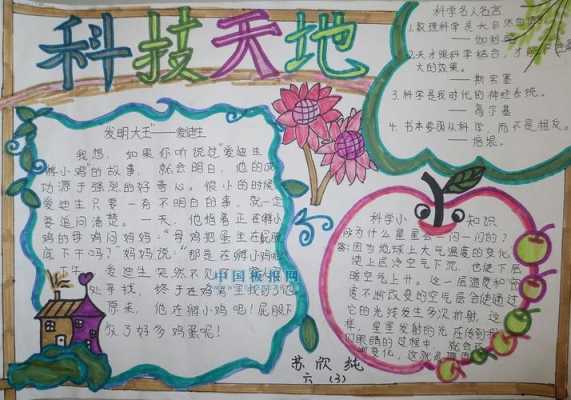 科技天地
科学名人名言
1.数理科学是大自然的语言。
——伽利略
2.天才跟科学结合,才能有最
大的效果。
——斯宾塞
3.科学是我时代的神经系统。
——高尔基
4.书本要图从科学,而不是相反。
——培根。
发明大王"——爱迪生
我想,如果你听说过"爱迪生
孵小鸡"的故事,就会明白,他的成
功源于强烈的好奇心。很小的时候
爱迪生只要一有不明白的事,就一定
要追问清楚。一天,他指着正在孵小
鸡的母鸡问妈妈:"母鸡把蛋坐在屁股
底下干吗?"妈妈说:"那是在孵小鸡呢
爱迪生突然不见
处寻找,终于在鸡窝里找到了他
原来,他在孵小鸡呢!屁股下
放了好多鸡蛋呢!
中国板报网
科学小知识
为什么星星会一闪一闪的?
答:因为地球上大气温度的变化,
使上层冷空气下沉,也使下层
暖空气上升。这一层温度和密
度不断改变的空气层会使通过
它的光线发生多次折射,这
样,星星发射的光在传到
们眼睛的过程中,就会
变化,这就
苏欣纯
六(3)